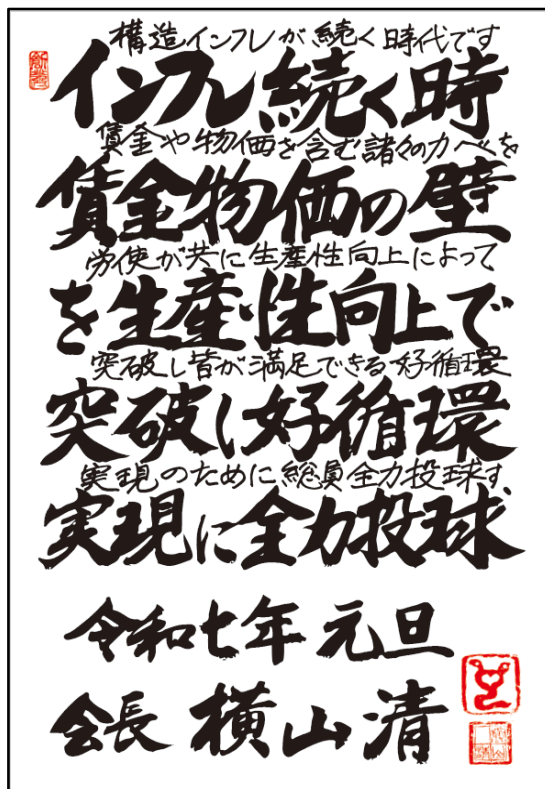 構造インフレが続く時代です
インフレ続く時
賃金や物価を含む諸々のカベを
賃金物価の壁
労使が共に生産性向上によって
を生産性向上で
突破し皆が満足できる好循環
突破し好循環
実現のために総員全力投球す
実現に全力投球
令和七年 元旦
会長 横山清